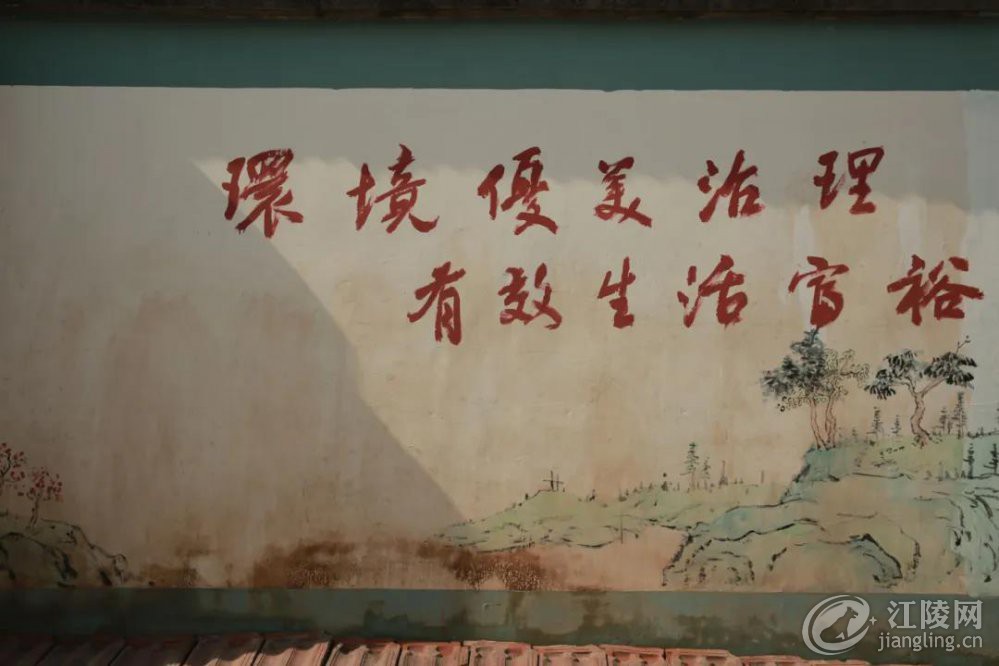 環境優美治理
有效生活富裕
江陵网
jiangling.cn